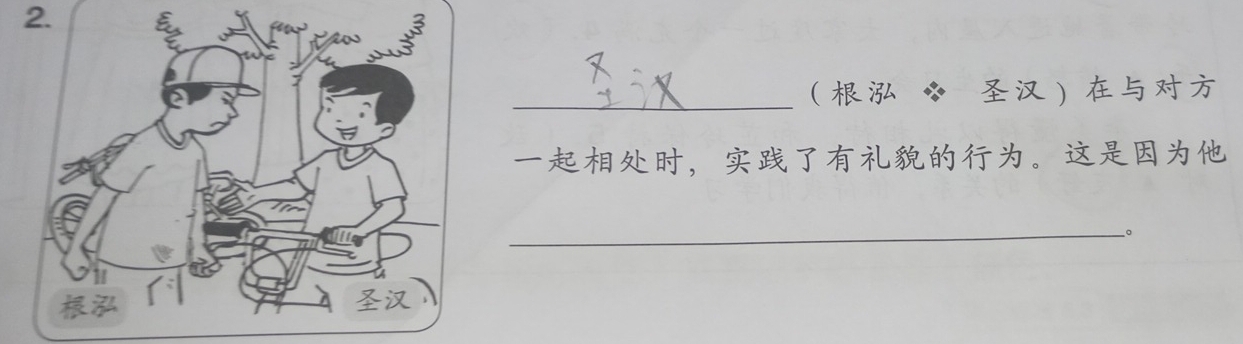 2.
圣汉
（根泓 ❖ 圣汉）在与对方
一起相处时，实践了有礼貌的行为。这是因为他
。
根泓
圣汉